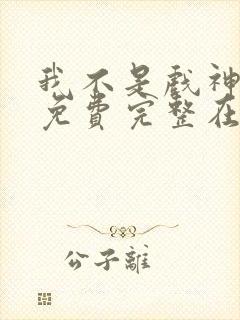 我不是戏神
免费完整在
公子離